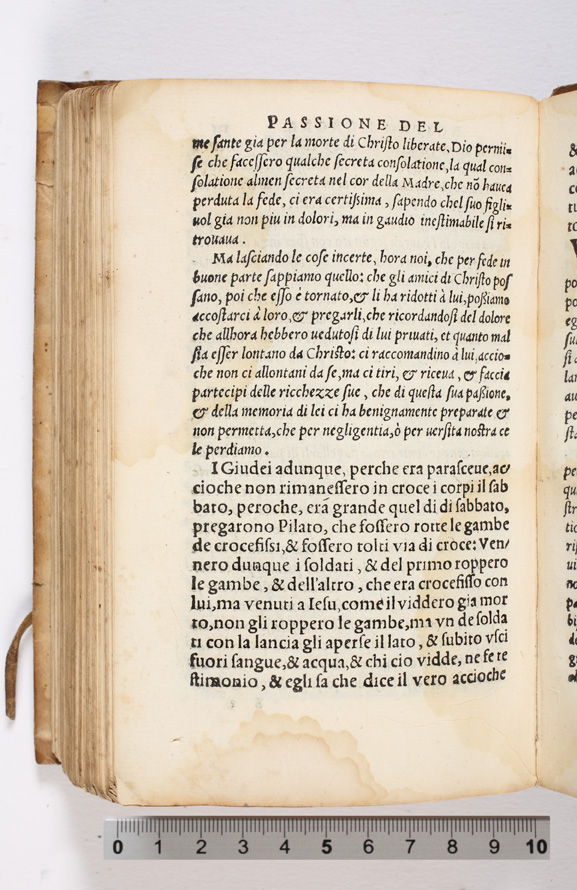 PASSIONE DEL
me sante gia per la morte di Christo liberate, Dio permi=
se che facessero qualche secreta consolatione, la qual con=
solatione almen secreta nel cor della Madre, che nō hauea
perduta la fede, ci era certissima, sapendo chel suo figli=
uol gia non piu in dolori, ma in gaudio inestimabile si ri=
trouaua.
Ma lasciando le cose incerte, hora noi, che per fede in
buone parte sappiamo quello: che gli amici di Christo pos
sano, poi che esso è tornato, & li ha ridotti à lui, possiamo
accostarci à loro, & pregarli, che ricordandosi del dolore
che allhora hebbero uedutosi di lui priuati, et quanto mal
sia esser lontano da Christo: ci raccomandino à lui, accio=
che non ci allontani da se, ma ci tiri, & riceua, & faccia
partecipi delle ricchezze sue, che di questa sua passione,
& della memoria di lei ci ha benignamente preparate &
non permetta, che per negligentia, ò per uersita nostra ce
le perdiamo.
I Giudei adunque, perche era parasceue, ac/
cioche non rimanessero in croce i corpi il sab
bato, peroche, era grande quel di di sabbato,
pregarono Pilato, che fossero rotte le gambe
de crocefissi, & fossero tolti via di croce: Ven/
nero dunque i soldati, & del primo roppero
le gambe, & dell'altro, che era crocefisso con
lui, ma venuti a Iesu, come il viddero gia mor
to, non gli roppero le gambe, ma vn de solda
ti con la lancia gli aperse il lato, & subito vsci
fuori sangue, & acqua, & chi cio vidde, ne fe te
stimonio, & egli sa che dice il vero accioche
0 1 2 3 4 5 6 7 8 9 10